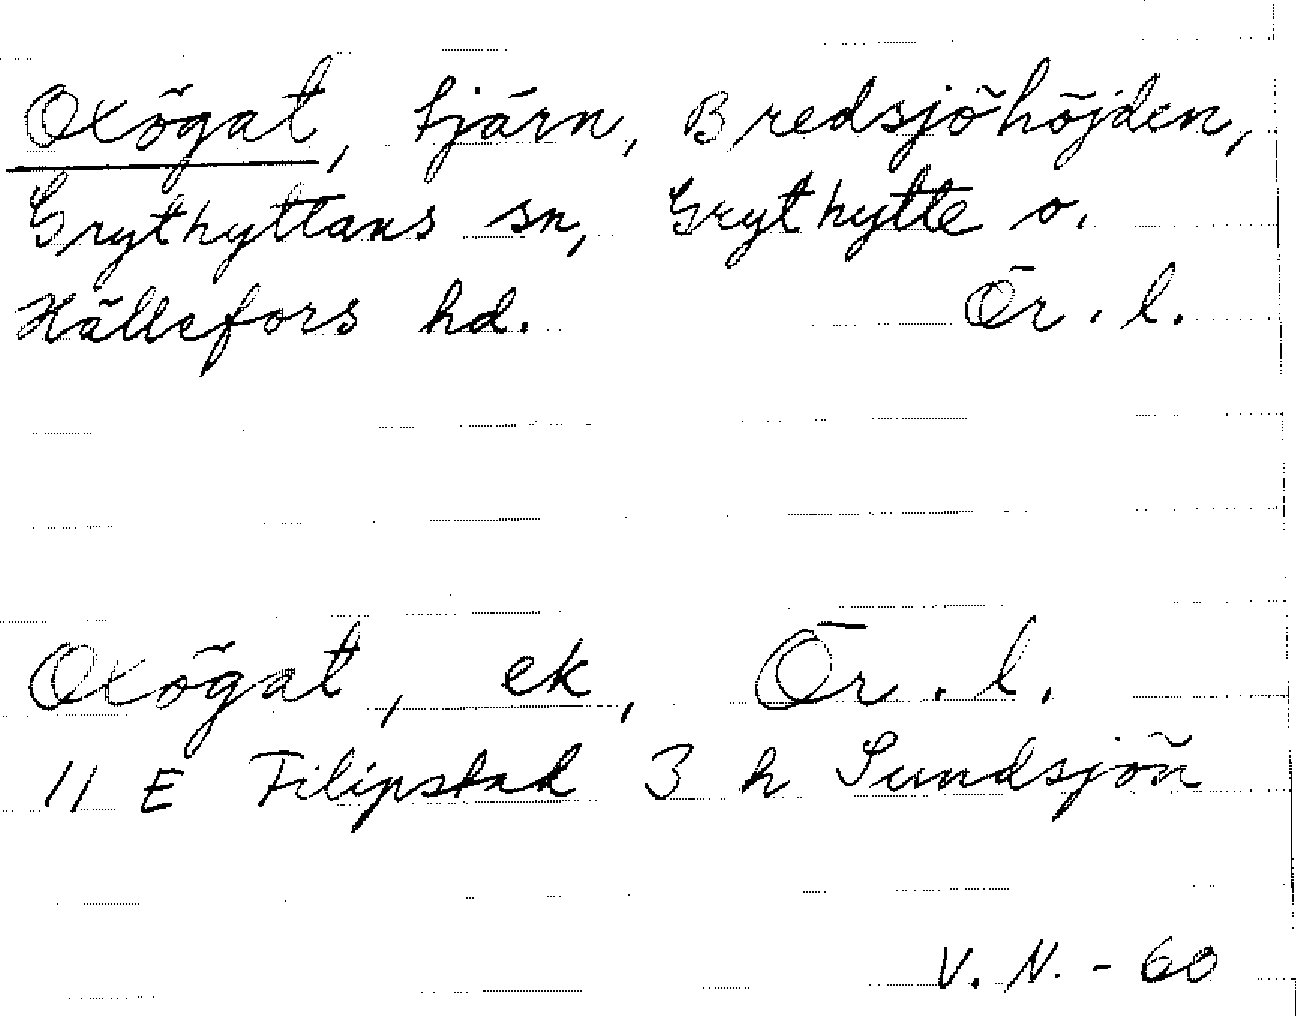 Oxögat, tjärn, Bredsjöhöjden,
Grythyttans sn, Grythytte o.
Hällefors hd. Ör. l.
Oxögat, ek, Ör. l.
11 E Filipstad 3 h Sundsjön
V. N. - 60